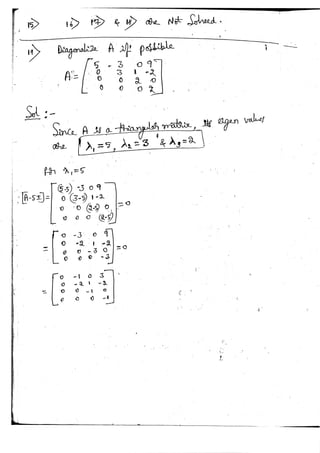 15> 16> 17> & 18> are Not Solved.
19> Diagonalize A if possible
A = [5 -3 0 9
0 3 1 -2
0 0 2 0
0 0 0 2]
Sol :-
Since A is a triangular matrix, its eigen values
are λ₁=5, λ₂=3 & λ₃=2
For λ₁=5
[A-5I] = [(5-5) -3 0 9
0 (3-5) 1 -2
0 0 (2-5) 0
0 0 0 (2-5)] =0
= [0 -3 0 9
0 -2 1 -2
0 0 -3 0
0 0 0 -3] =0
= [0 -1 0 3
0 -2 1 -2
0 0 -1 0
0 0 0 -1]